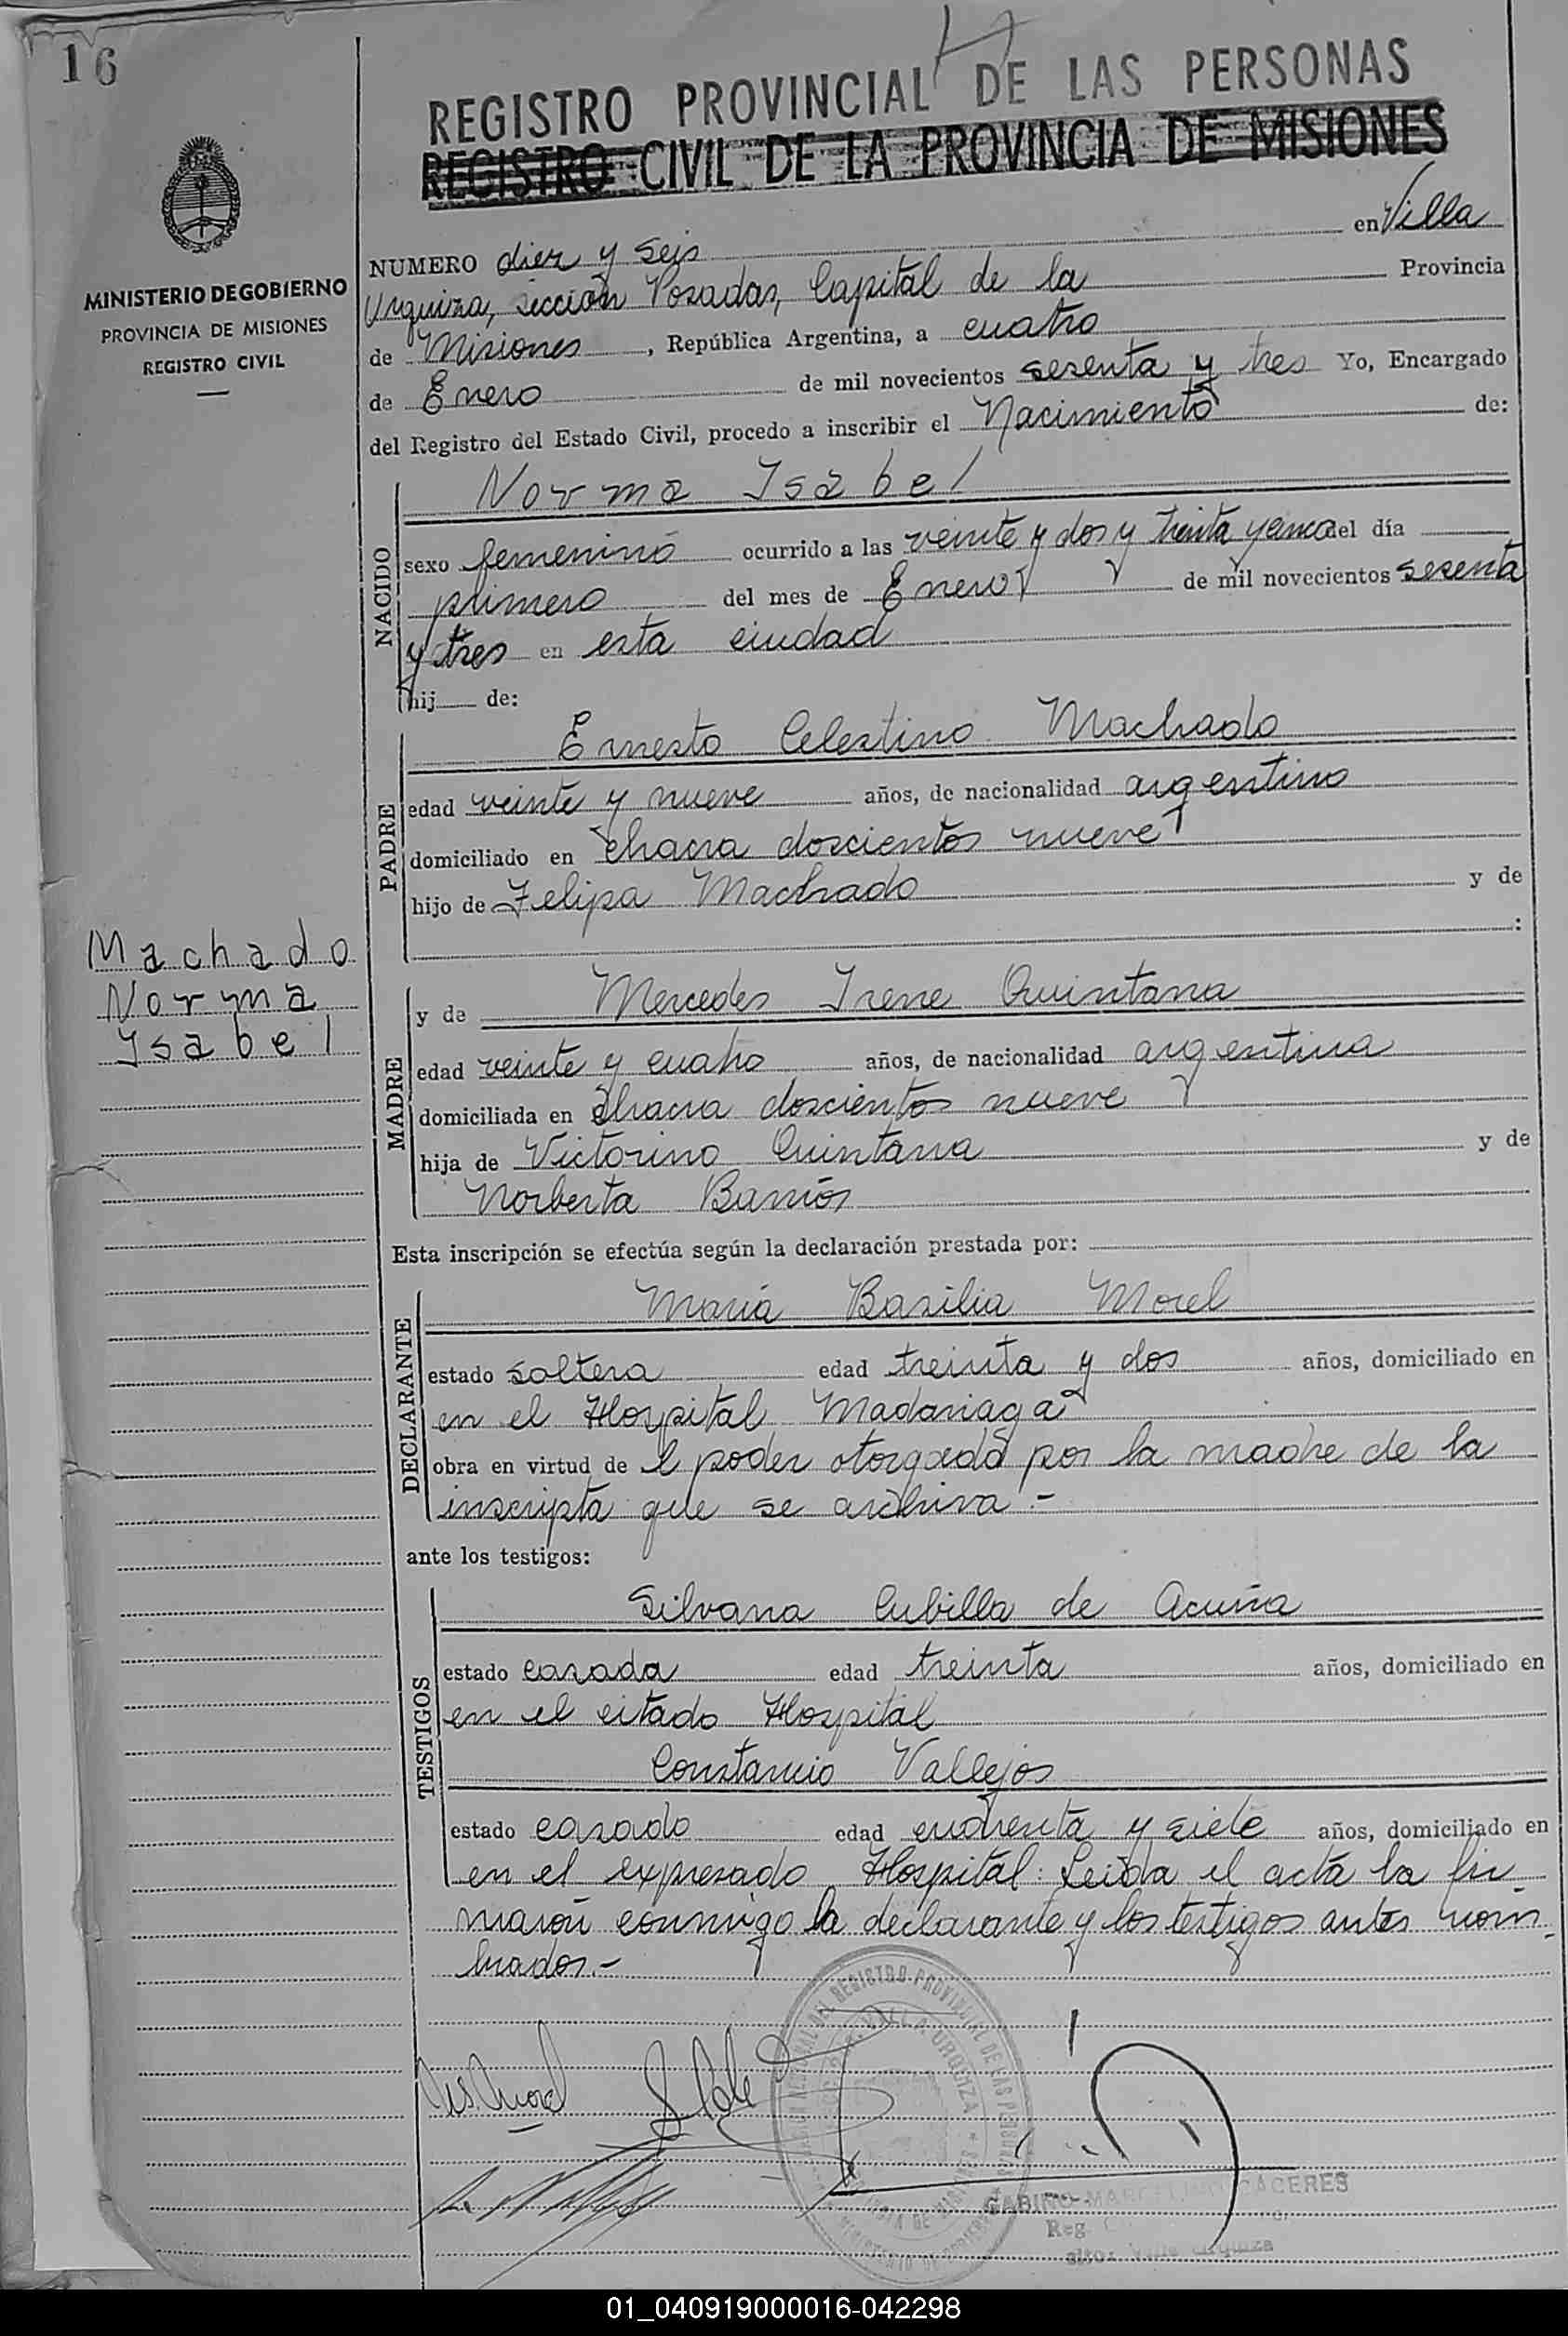 16
REGISTRO PROVINCIAL DE LAS PERSONAS
REGISTRO CIVIL DE LA PROVINCIA DE MISIONES
MINISTERIO DE GOBIERNO
PROVINCIA DE MISIONES
REGISTRO CIVIL
NUMERO diez y seis en Villa
Urquiza, sección Posadas, Capital de la Provincia
de Misiones, República Argentina, a cuatro
de Enero de mil novecientos sesenta y tres Yo, Encargado
del Registro del Estado Civil, procedo a inscribir el Nacimiento de:
NACIDO
Norma Isabel
sexo femenino ocurrido a las veinte y dos y treinta y cinco del día
primero del mes de Enero de mil novecientos sesenta
y tres en esta ciudad
hij de:
PADRE
Ernesto Celestino Machado
edad veinte y nueve años, de nacionalidad argentino
domiciliado en chacra doscientos nueve
hijo de Felipa Machado y de
:
Machado
Norma
Isabel
MADRE
y de Mercedes Irene Quintana
edad veinte y cuatro años, de nacionalidad argentina
domiciliada en chacra doscientos nueve
hija de Victorino Quintana y de
Norberta Barrios
Esta inscripción se efectúa según la declaración prestada por:
DECLARANTE
María Basilia Morel
estado soltera edad treinta y dos años, domiciliado en
en el Hospital Madariaga
obra en virtud de l poder otorgado por la madre de la
inscripta que se archiva.-
ante los testigos:
TESTIGOS
Silvana Cubilla de Acuña
estado casada edad treinta años, domiciliado en
en el citado Hospital
Constancio Vallejos
estado casado edad cuarenta y siete años, domiciliado en
en el expresado Hospital: Leída el acta la fir-
maron conmigo la declarante y los testigos antes nom-
brados.-
REGISTRO PROVINCIAL DE LAS PERSONAS
VILLA URQUIZA
GABINO MARCELINO CACERES
Reg.
Villa Urquiza
01_040919000016-042298